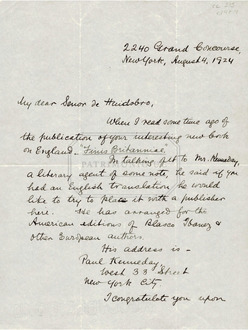 2240 Grand Concourse,
New York, August 4, 1924
My dear Senor de Huidobro,
When I read some time ago of
the publication of your interesting new book
on England, "Finis Britannia"
In talking of it to Mr. Kennaday,
a literary agent of some note, he said if you
had an English translation he would
like to try to place it with a publisher
here. He has arranged for the
American editions of Blasco Ibanez &
other European authors.
His address is –
Paul Kennaday
West 33 Street
New York City
I congratulate you upon